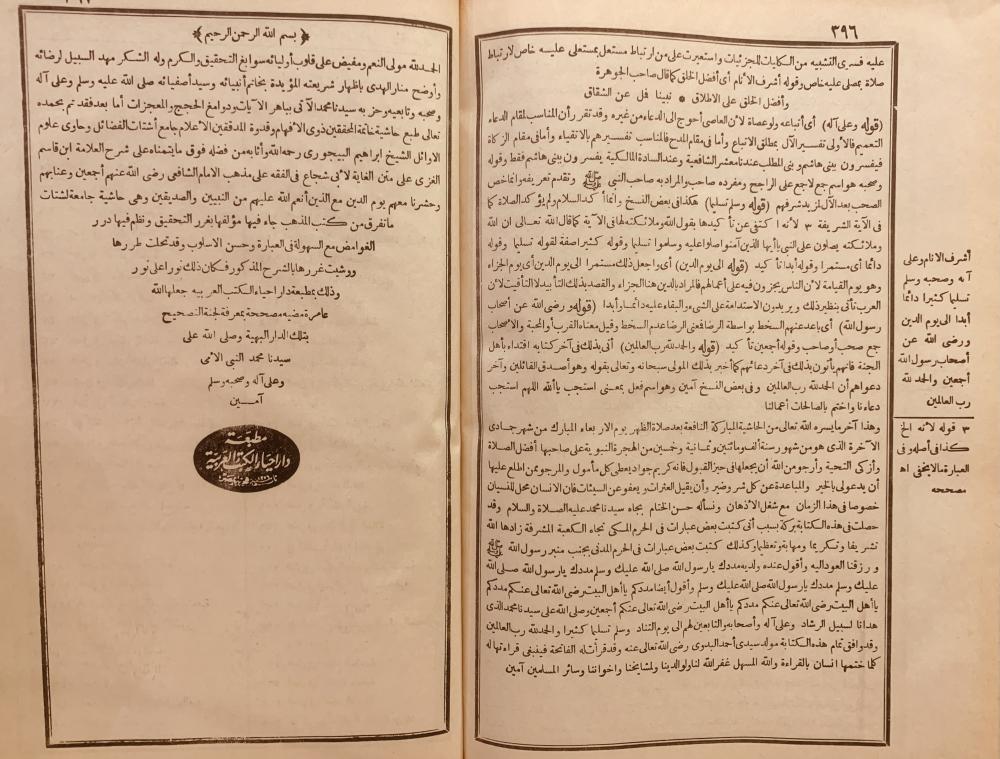 ٣٩٦
عليه فسرى التشبيه من الكليات للجزئيات واستعيرت على من ارتباط مستعل بمستعلى عليه خاص لارتباط
صلاة بمصلى عليه خاص وقوله أشرف الأنام أى أفضل الخلق كما قال صاحب الجوهرة
وأفضل الخلق على الاطلاق * نبينا فمل عن الشقاق
(قوله وعلى آله) أى أتباعه ولو عصاة لأن العاصى أحوج الى الدعاء من غيره وقد تقرر أن المناسب لمقام الدعاء
التعميم فالأولى تفسير الآل بمطلق الاتباع وأما فى مقام المدح فالمناسب تفسيرهم بالاتقياء وأما فى مقام الزكاة
فيفسرون ببنى هاشم وبنى المطلب عندنا معشر الشافعية وعند السادة المالكية يفسرون ببنى هاشم فقط وقوله
وصحبه هو اسم جمع لا جمع على الراجح ومفرده صاحب والمراد به صاحب النبى ﷺ وتقدم تعريفه وانما خص
الصحب بعد الآل لمزيد شرفهم (قوله وسلم تسليما) هكذا فى بعض النسخ وانما أكد السلام ولم يؤكد الصلاة كما
فى الآية الشريفة ٣ لأنه اكتفى عن تأكيدها بقول الله وملائكته لها فى الآية كما قال الله تعالى ان الله
وملائكته يصلون على النبى يا أيها الذين آمنوا صلوا عليه وسلموا تسليما وقوله كثيرا صفة لقوله تسليما وقوله
دائما أى مستمرا وقوله أبدا تأكيد (قوله الى يوم الدين) أى واجعل ذلك مستمرا الى يوم الدين أى يوم الجزاء
وهو يوم القيامة لأن الناس يجزون فيه على أعمالهم فالمراد بالدين هنا الجزاء والقصد بذلك التأبيد لا التأقيت لأن
العرب تأتى بنظير ذلك ويريدون الاستدامة على الشىء والبقاء عليه دائما وأبدا (قوله ورضى الله عن أصحاب
رسول الله) أى باعد عنهم السخط بواسطة الرضا فمعنى الرضا عدم السخط وقيل معناه القرب أو المحبة والاصحاب
جمع صحب أو صاحب وقوله أجمعين تأكيد (قوله والحمد لله رب العالمين) أتى بذلك فى آخر كتابه اقتداء بأهل
الجنة فانهم يأتون بذلك فى آخر دعائهم كما أخبر بذلك المولى سبحانه وتعالى بقوله وهو أصدق القائلين وآخر
دعواهم أن الحمد لله رب العالمين وفى بعض النسخ آمين وهو اسم فعل بمعنى استجب يا ألله اللهم استجب
دعاءنا واختم بالصالحات أعمالنا
وهذا آخر ما يسره الله تعالى من الحاشية المباركة النافعة بعد صلاة الظهر يوم الاربعاء المبارك من شهر جمادى
الآخرة الذى هو من شهور سنة ألف ومائتين وثمانية وخمسين من الهجرة النبوية على صاحبها أفضل الصلاة
وأزكى التحية وأرجو من الله أن يجعلها فى حيز القبول فانه كريم جواد يعطى كل مأمول والمرجو من اطلع عليها
أن يدعو لى بالخير والمباعدة عن كل شر وضير وأن يقيل العثرات ويعفو عن السيئات فان الانسان محل للنسيان
خصوصا فى هذا الزمان مع شغل الأذهان ونسأله حسن الختام بجاه سيدنا محمد عليه الصلاة والسلام وقد
حصلت فى هذه الكتابة بركة بسبب أنى كتبت بعض عبارات فى الحرم المكى تجاه الكعبة المشرفة زادها الله
تشريفا وتكريما ومهابة وتعظيما وكذلك كتبت بعض عبارات فى الحرم المدنى بجنب منبر رسول الله ﷺ
ورزقنا العود اليه وأقول عنده ولديه مددك يارسول الله صلى الله عليك وسلم مددك يارسول الله صلى الله
عليك وسلم مددك يارسول الله صلى الله عليك وسلم وأقول أيضا مددكم يا أهل البيت رضى الله تعالى عنكم مددكم
يا أهل البيت رضى الله تعالى عنكم مددكم يا أهل البيت رضى الله تعالى عنكم أجمعين وصلى الله على سيدنا محمد الذى
هدانا لسبيل الرشاد وعلى آله وأصحابه والتابعين لهم الى يوم التناد وسلم تسليما كثيرا والحمد لله رب العالمين
وقد وافق تمام هذه الكتابة مولد سيدى أحمد البدوى رضى الله تعالى عنه وقد قرأت له الفاتحة فينبغى قراءتها له
كلما ختمها انسان بالقراءة والله المسهل غفر الله لنا ولوالدينا ولمشايخنا واخواننا وسائر المسلمين آمين
أشرف الانام وعلى
آله وصحبه وسلم
تسليما كثيرا دائما
أبدا الى يوم الدين
ورضى الله عن
أصحاب رسول الله
أجمعين والحمد لله
رب العالمين
٣ قوله لأنه الخ
كذا فى أصله وفى
العبارة ما لا يخفى اه
مصححه
﴿ بسم الله الرحمن الرحيم ﴾
الحمد لله مولى النعم ومفيض على قلوب أوليائه سوابغ التحقيق والكرم وله الشكر مهد السبيل لرضائه
وأوضح منار الهدى باظهار شريعته المؤيدة بخاتم أنبيائه وسيد أصفيائه صلى الله عليه وسلم وعلى آله
وصحبه وتابعيه وحزبه سيدنا محمد الآتى بباهر الآيات ودوامغ الحجج والمعجزات أما بعد فقد تم بحمده
تعالى طبع حاشية خاتمة المحققين ذوى الافهام وقدوة المدققين الاعلام جامع أشتات الفضائل وحاوى علوم
الاوائل الشيخ ابراهيم البيجورى رحمه الله وأثابه من فضله فوق ما يتمناه على شرح العلامة ابن قاسم
الغزى على متن الغاية لأبى شجاع فى الفقه على مذهب الامام الشافعى رضى الله عنهم أجمعين وعنا بهم
وحشرنا معهم يوم الدين مع الذين أنعم الله عليهم من النبيين والصديقين وهى حاشية جامعة لشتات
ما تفرق من كتب المذهب جاء فيها مؤلفها بغرر التحقيق ونظم فيها درر
الغوامض مع السهولة فى العبارة وحسن الاسلوب وقد تحلت طررها
ووشيت غررها بالشرح المذكور فكان ذلك نورا على نور
وذلك بمطبعة دار احياء الكتب العربيه جعلها الله
عامرة مضيه مصححة بمعرفة لجنة التصحيح
بتلك الدار البهية وصلى الله على
سيدنا محمد النبى الامى
وعلى آله وصحبه وسلم
آمـــين
مطبعة
دار احياء الكتب العربية